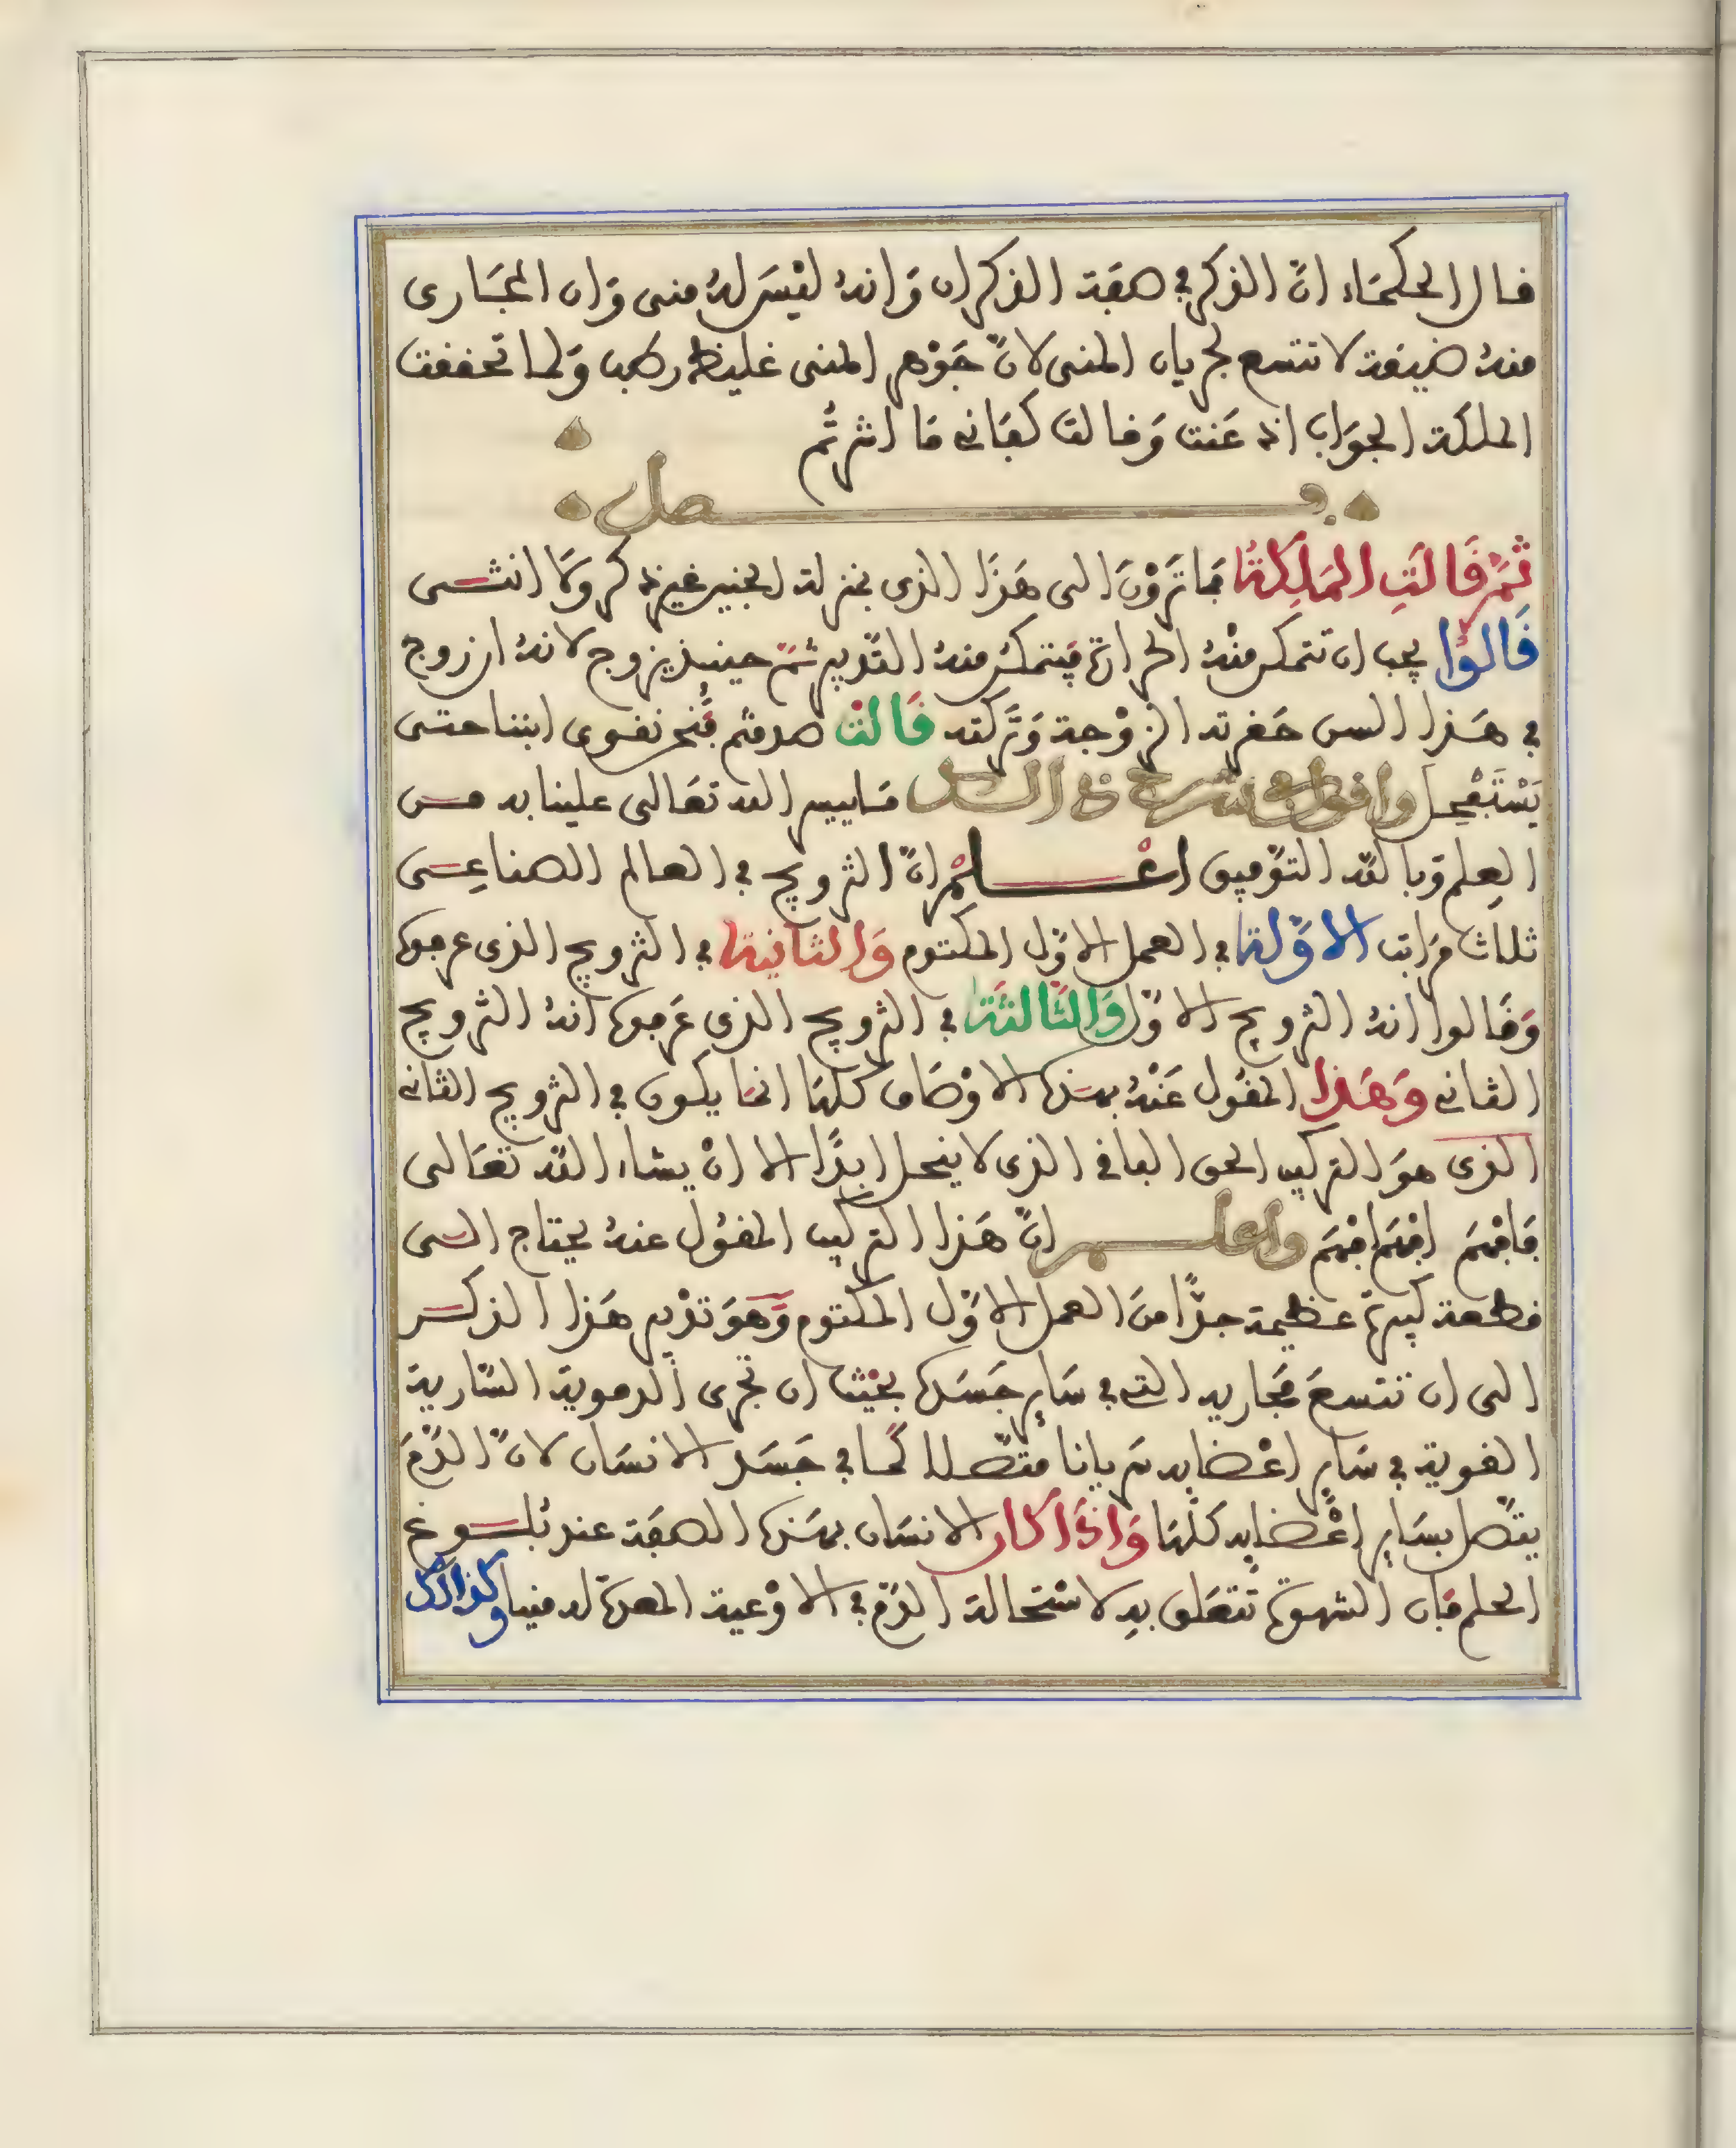 قال الحكماء انّ الذكر في صفة الذكران وَانهُ ليْسَ لهُ منى وَان المجَارى
منهُ ضيقة لا تتسع لجريان المنى لانّ جَوْهر المنى غليظ رطب وَلما تحققت
الملكة الجوَاب اذعَنت وَقالت كفَانى مَا اشرتُم
فصل
ثمّ قَالَتِ المَلِكَة فمَا تَرَوْنَ الى هَذَا الذى بمنزلة الجنين غير ذكر ولا انثى
قَالوُا يجب ان تتمكن منْهُ الحرارة فيتمكن منهُ التدبير ثمّ حينيذ يزوج لانهُ ان زوج
في هَذا السن حَقرته الزوْجة وَتَركته قَالتْ صدقتم فَنحْن نقوى ابننا حتى
يَسْتَفْحِل وَاقول في شرح ذالك مَا ييسر الله تعَالى علينا به من
العِلم وَبالله التوْفيق اعْلمْ انّ التزويج في العالم الصناعِى
ثلاث مرَاتب الاوَّلة في العمل الاوّل المكتوم وَالثانية في التزويج الذى عرفوهُ
وَقَالوا انهُ التزويج الاوّل وَالثَالثَة في التزويج الذى عَرفوهُ انهُ التزويج
الثانى وَهَذا المقول عَنْهُ بهَذه الاوْصَاف كلهَا انما يكون في التزويج الثانى
الذى هوَ التركيب الحق الباقى الذى لا ينحل ابدًا الا انْ يشاء الله تعَالى
فَافهَم افهَم افهَم وَاعلم انّ هَذا التركيب المقوُل عنهُ يحتاج الى
قطعة كبيرة عظيمة جدًّا منَ العمل الاوّل المكتوم وَهوَ تدْبير هَذا الذكر
الى ان تتسعَ مجَاريه التى في سَاير جَسَده بحيْث ان تجرى الدموية السَّارية
القوية في سَاير اعْضايه سَريانا متصّلا كمَا في جَسَد الانسَان لانّ الدّمَ
يتّصل بسَاير اعْضايه كلّهَا وَاذَا كان الانسَان بهَذه الصفَة عند بُلوغ
الحلم فَان الشهوة تتعَلق بهِ لاسْتحَالة الدّم في الاوْعية المعدة له منيا وكذالك